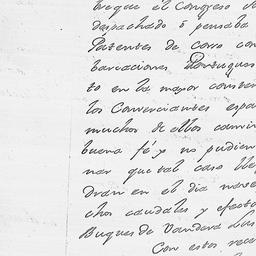 treque el Congreso de
despachado ó pensaba
Patentes de Corso con
barcaciones Portugues
to en la mayor conster
los Comerciantes espa
muchos de ellos camin
buena fé, y no pudien
nar que tal caso lle
Dran en el dia nave
chos caudales y efecto
Buques de Vandera Lus
Con estos rece